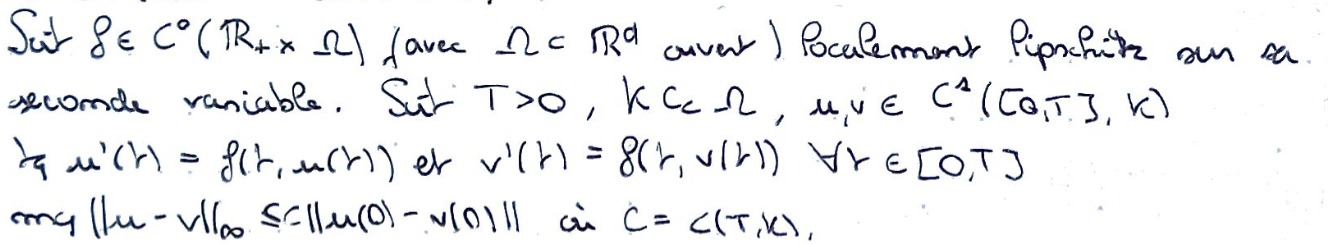 Soit f ∈ C⁰(ℝ₊ × Ω) (avec Ω ⊂ ℝᵈ ouvert) localement lipschitz sur sa
seconde variable. Soit T>0, K ⊂⊂ Ω, u,v ∈ C¹([0,T], K)
tq u'(t) = f(t, u(t)) et v'(t) = f(t, v(t)) ∀t ∈ [0,T]
mq ||u - v||∞ ≤ C||u(0) - v(0)|| où C = C(T,K).